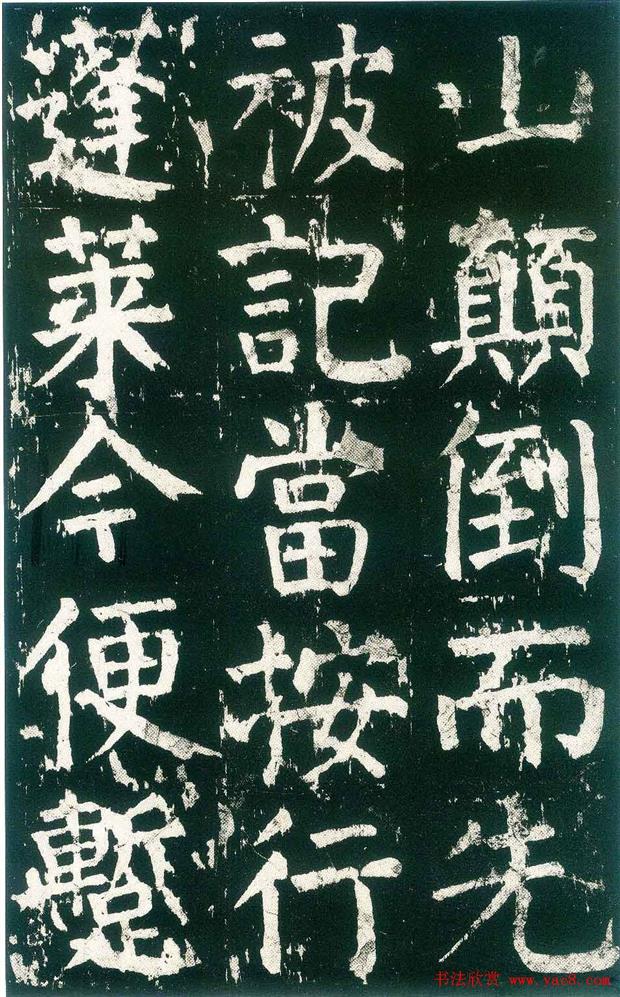 山顛倒而先
被記當按行
蓬萊今便蹔
书法欣赏 www.yac8.com